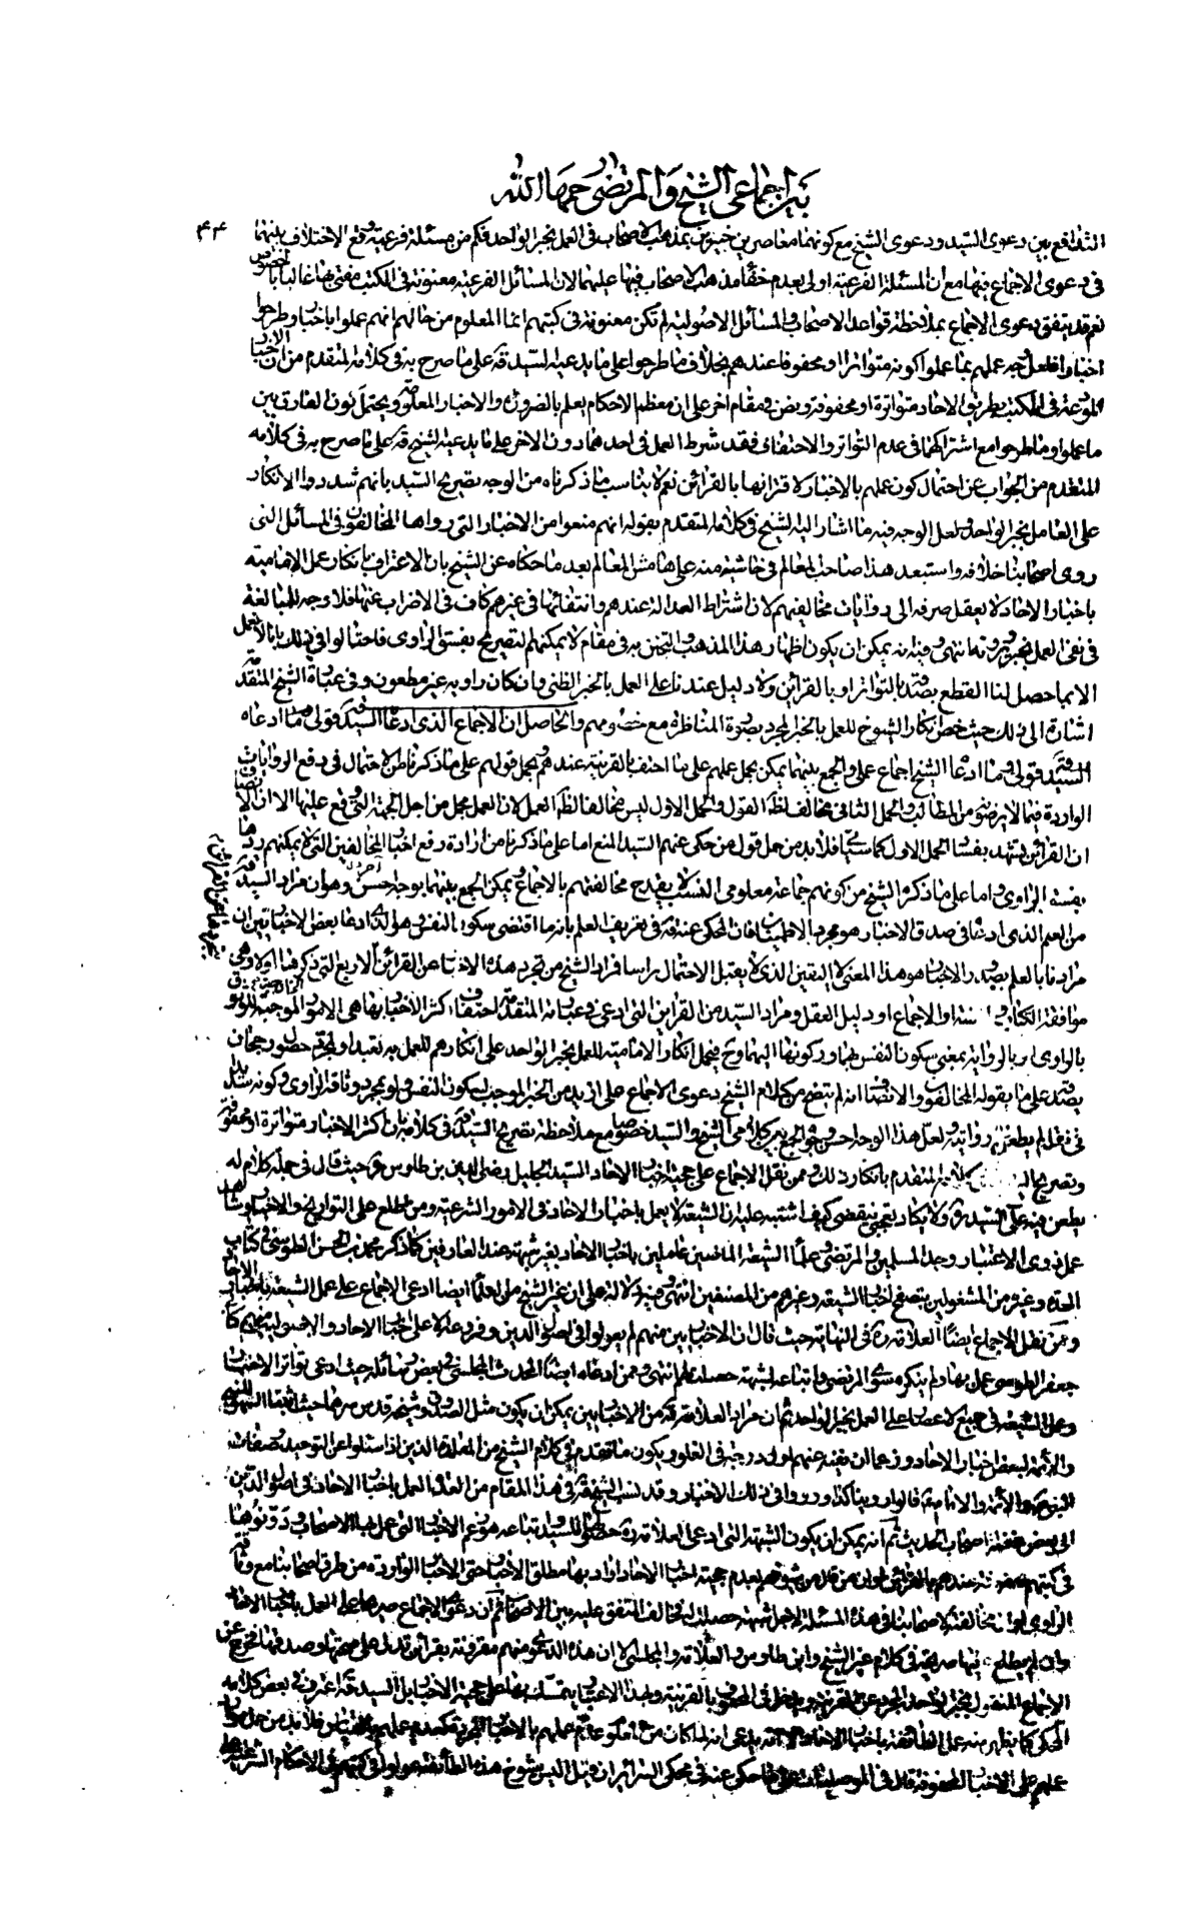 بين اجماعي الشيخ والمرتضى رحمهما الله
٤٤
التدافع بين دعوى السيد ودعوى الشيخ مع كونهما معاصرين خبيرين بمذهب الاصحاب في العمل بخبر الواحد فكم من مسئلة فرعية وقع الاختلاف بينهما
في دعوى الاجماع فيها مع ان المسئلة الفرعية اولى بعدم خفاء مذهب الاصحاب فيها عليهما لان المسائل الفرعية معنونة في الكتب مفتى بها غالبا بالخصوص
نعم قد يتفق دعوى الاجماع بملاحظة قواعد الاصحاب والمسائل الاصولية لم تكن معنونة في كتبهم انما المعلوم من حالهم انهم عملوا باخبار وطرحوا
اخبارا فلعل وجه عملهم بما عملوا كونه متواترا او محفوفا عندهم بخلاف ما طرحوا على ما يدعيه السيد قده على ما صرح به في كلامه المتقدم من ان الاخبار
المودعة في الكتب بطريق الاحاد متواترة او محفوفة ونص في مقام اخر على ان معظم الاحكام يعلم بالضرورة والاخبار المعلومة ويحتمل كون الفارق بين
ما عملوا وما طرحوا مع اشتراكهما في عدم التواتر والاحتفاف فقد شرط العمل في احدهما دون الاخر على ما يدعيه الشيخ قده على ما صرح به في كلامه
المتقدم من الجواب عن احتمال كون عملهم بالاخبار لاقترانها بالقرائن نعم لا يناسب ما ذكرناه من الوجه تصريح السيد بانهم شددوا الانكار
على العامل بخبر الواحد ولعل الوجه فيه ما اشار اليه الشيخ في كلامه المتقدم بقوله انهم منعوا من الاخبار التي رواها المخالفون في المسائل التي
روى اصحابنا خلافه واستبعد هذا صاحب المعالم في حاشية منه على هامش المعالم بعد ما حكاه عن الشيخ بان الاعتراف بانكار عمل الامامية
باخبار الاحاد لا يعقل صرفه الى روايات مخالفيهم لان اشتراط العدالة عندهم وانتفائها في غيرهم كاف في الاضراب عنها فلا وجه للمبالغة
في نفي العمل بخبر يروونه انتهى وفيه انه يمكن ان يكون اظهار هذا المذهب والتجنن به في مقام لا يمكنهم التصريح بفسق الراوي فاحتالوا في ذلك بانا لا نعمل
الا بما حصل لنا القطع بصدقه بالتواتر او بالقرائن ولا دليل عندنا على العمل بالخبر الظني وان كان راويه غير مطعون وفي عبارة الشيخ المتقدمة
اشارة الى ذلك حيث خص انكار الشيوخ للعمل بالخبر المجرد بصورة المناظرة مع خصومهم والحاصل ان الاجماع الذي ادعاه السيد قده قولي وما ادعاه
الشيخ اجماع عملي والجمع بينهما يمكن بحمل عملهم على ما احتف بالقرينة عندهم وبحمل قولهم على ما ذكرنا من الاحتمال في دفع الروايات
الواردة فيما لا يرضونه من المطالب والحمل الثاني مخالف لظاهر القول والحمل الاول ليس مخالفا لظاهر العمل لان العمل مجمل من اجل الجهة التي وقع عليها الا ان الانصاف
ان القرائن تشهد بفساد الحمل الاول كما سيأتي فلا بد من حمل قول من حكى عنهم السيد المنع اما على ما ذكرنا من ارادة دفع اخبار المخالفين التي لا يمكنهم ردها
بفسق الراوي واما على ما ذكره الشيخ من كونهم جماعة معلومي النسب لا يقدح مخالفتهم بالاجماع ويمكن الجمع بينهما بوجه احسن وهو ان مراد السيد قده
من العلم الذي ادعاه في صدق الاخبار هو مجرد الاطمينان فان المحكي عنه قده في تعريف العلم بانه ما اقتضى سكون النفس وهو الذي ادعاه بعض الاخباريين ان
مرادنا بالعلم بصدور الاخبار هو هذا المعنى لا اليقين الذي لا يقبل الاحتمال راسا فمراد الشيخ من تجرد هذه الاخبار عن القرائن الاربع التي ذكرها اولا وهي
موافقة الكتاب او السنة او الاجماع او دليل العقل ومراد السيد من القرائن التي ادعى في عبارته المتقدمة احتفاف اكثر الاخبار بها هي الامور الموجبة للوثوق
بالراوي او بالرواية بمعنى سكون النفس بهما وركونها اليهما وحينئذ فيحمل انكار الامامية للعمل بخبر الواحد على انكارهم للعمل به تعبدا او لمجرد حصول رجحان
بصدقه على ما يقوله المخالفون والانصاف انه لم يتضح من كلام الشيخ دعوى الاجماع على ازيد من الخبر الموجب لسكون النفس ولو بمجرد وثاقة الراوي وكونه سديدا
في نقله لم يطعن في روايته ولعل هذا الوجه احسن وجوه الجمع بين كلامي الشيخ والسيد خصوصا مع ملاحظة تصريح السيد قده في كلامه بان اكثر الاخبار متواترة او محفوفة
وتصريح الشيخ في كلامه المتقدم بانكار ذلك وممن نقل الاجماع على حجية اخبار الاحاد السيد الجليل رضي الدين بن طاوس قده حيث قال في جملة كلام له
يطعن فيه على السيد ره ولا يكاد تعجبي ينقضي كيف اشتبه عليه ان الشيعة لا يعمل باخبار الاحاد في الامور الشرعية ومن اطلع على التواريخ والاخبار وشاهد
عمل ذوي الاعتبار وجد المسلمين والمرتضى وعلماء الشيعة الماضين عاملين باخبار الاحاد بغير شبهة عند العارفين كما ذكر محمد بن الحسن الطوسي في كتاب
العدة وغيره من المشغولين بتصفح اخبار الشيعة وغيرهم من المصنفين انتهى وفيه دلالة على ان غير الشيخ من العلماء ايضا ادعى الاجماع على عمل الشيعة باخبار الاحاد
وممن نقل الاجماع ايضا العلامة ره في النهاية حيث قال ان الاخباريين منهم لم يعولوا في اصول الدين وفروعه الا على اخبار الاحاد والاصوليين منهم كابي
جعفر الطوسي عمل بها ولم ينكره سوى المرتضى واتباعه لشبهة حصلت لهم انتهى وممن ادعاه ايضا المحدث المجلسي في بعض رسائله حيث ادعى تواتر الاخبار
وعمل الشيعة في جميع الاعصار على العمل بخبر الواحد ثم ان مراد العلامة قده من الاخباريين يمكن ان يكون مثل الصدوق وشيخه قدس سرهما حيث اثبتا السهو للنبي
والائمة لبعض اخبار الاحاد وزعما ان نفيه عنهم اول درجة في الغلو ويكون ما تقدم في كلام الشيخ من المقلدة الذين اذا سئلوا عن التوحيد وصفات
النبي والائمة والامامة قالوا روينا كذا ورووا في ذلك الاخبار وقد نسب الشيخ قده في هذا المقام من العدة العمل باخبار الاحاد في اصول الدين
الى بعض غفلة اصحاب الحديث ثم انه يمكن ان يكون الشبهة التي ادعى العلامة قده حصولها للسيد واتباعه هو زعم الاخبار التي عمل بها الاصحاب ودونوها
في كتبهم محفوفة عندهم بالقرائن او ان من قال من شيوخهم بعدم حجية اخبار الاحاد اراد بها مطلق الاخبار حتى الاخبار الواردة من طرق اصحابنا مع وثاقة
الراوي او ان مخالفته لاصحابنا في هذه المسئلة لاجل شبهة حصلت له فخالف المتفق عليه بين الاصحاب ثم ان دعوى الاجماع على العمل باخبار الاحاد
وان لم نطلع عليها صريحة في كلام غير الشيخ وابن طاوس والعلامة والمجلسي الا ان هذه الدعوى منهم مقرونة بقرائن تدل على صحتها وصدقها فخرج عن
الاجماع المنقول بخبر الواحد المجرد عن القرينة ويدخل في المحفوف بالقرينة وبهذا الاعتبار يتمسك بها على حجية الاخبار بل السيد قده اعترف في بعض كلامه
المحكي كما يظهر منه على الطائفة باخبار الاحاد الا انه يدعي انه لما كان من المعلوم عدم عملهم بالاخبار المجردة كعدم عملهم بالقياس فلا بد من حمل موارد
عملهم على الاخبار المحفوفة قال في الموصليات على ما حكي عنه في محكي السرائر ان قيل اليس شيوخ هذه الطائفة عولوا في كتبهم في الاحكام الشرعية على